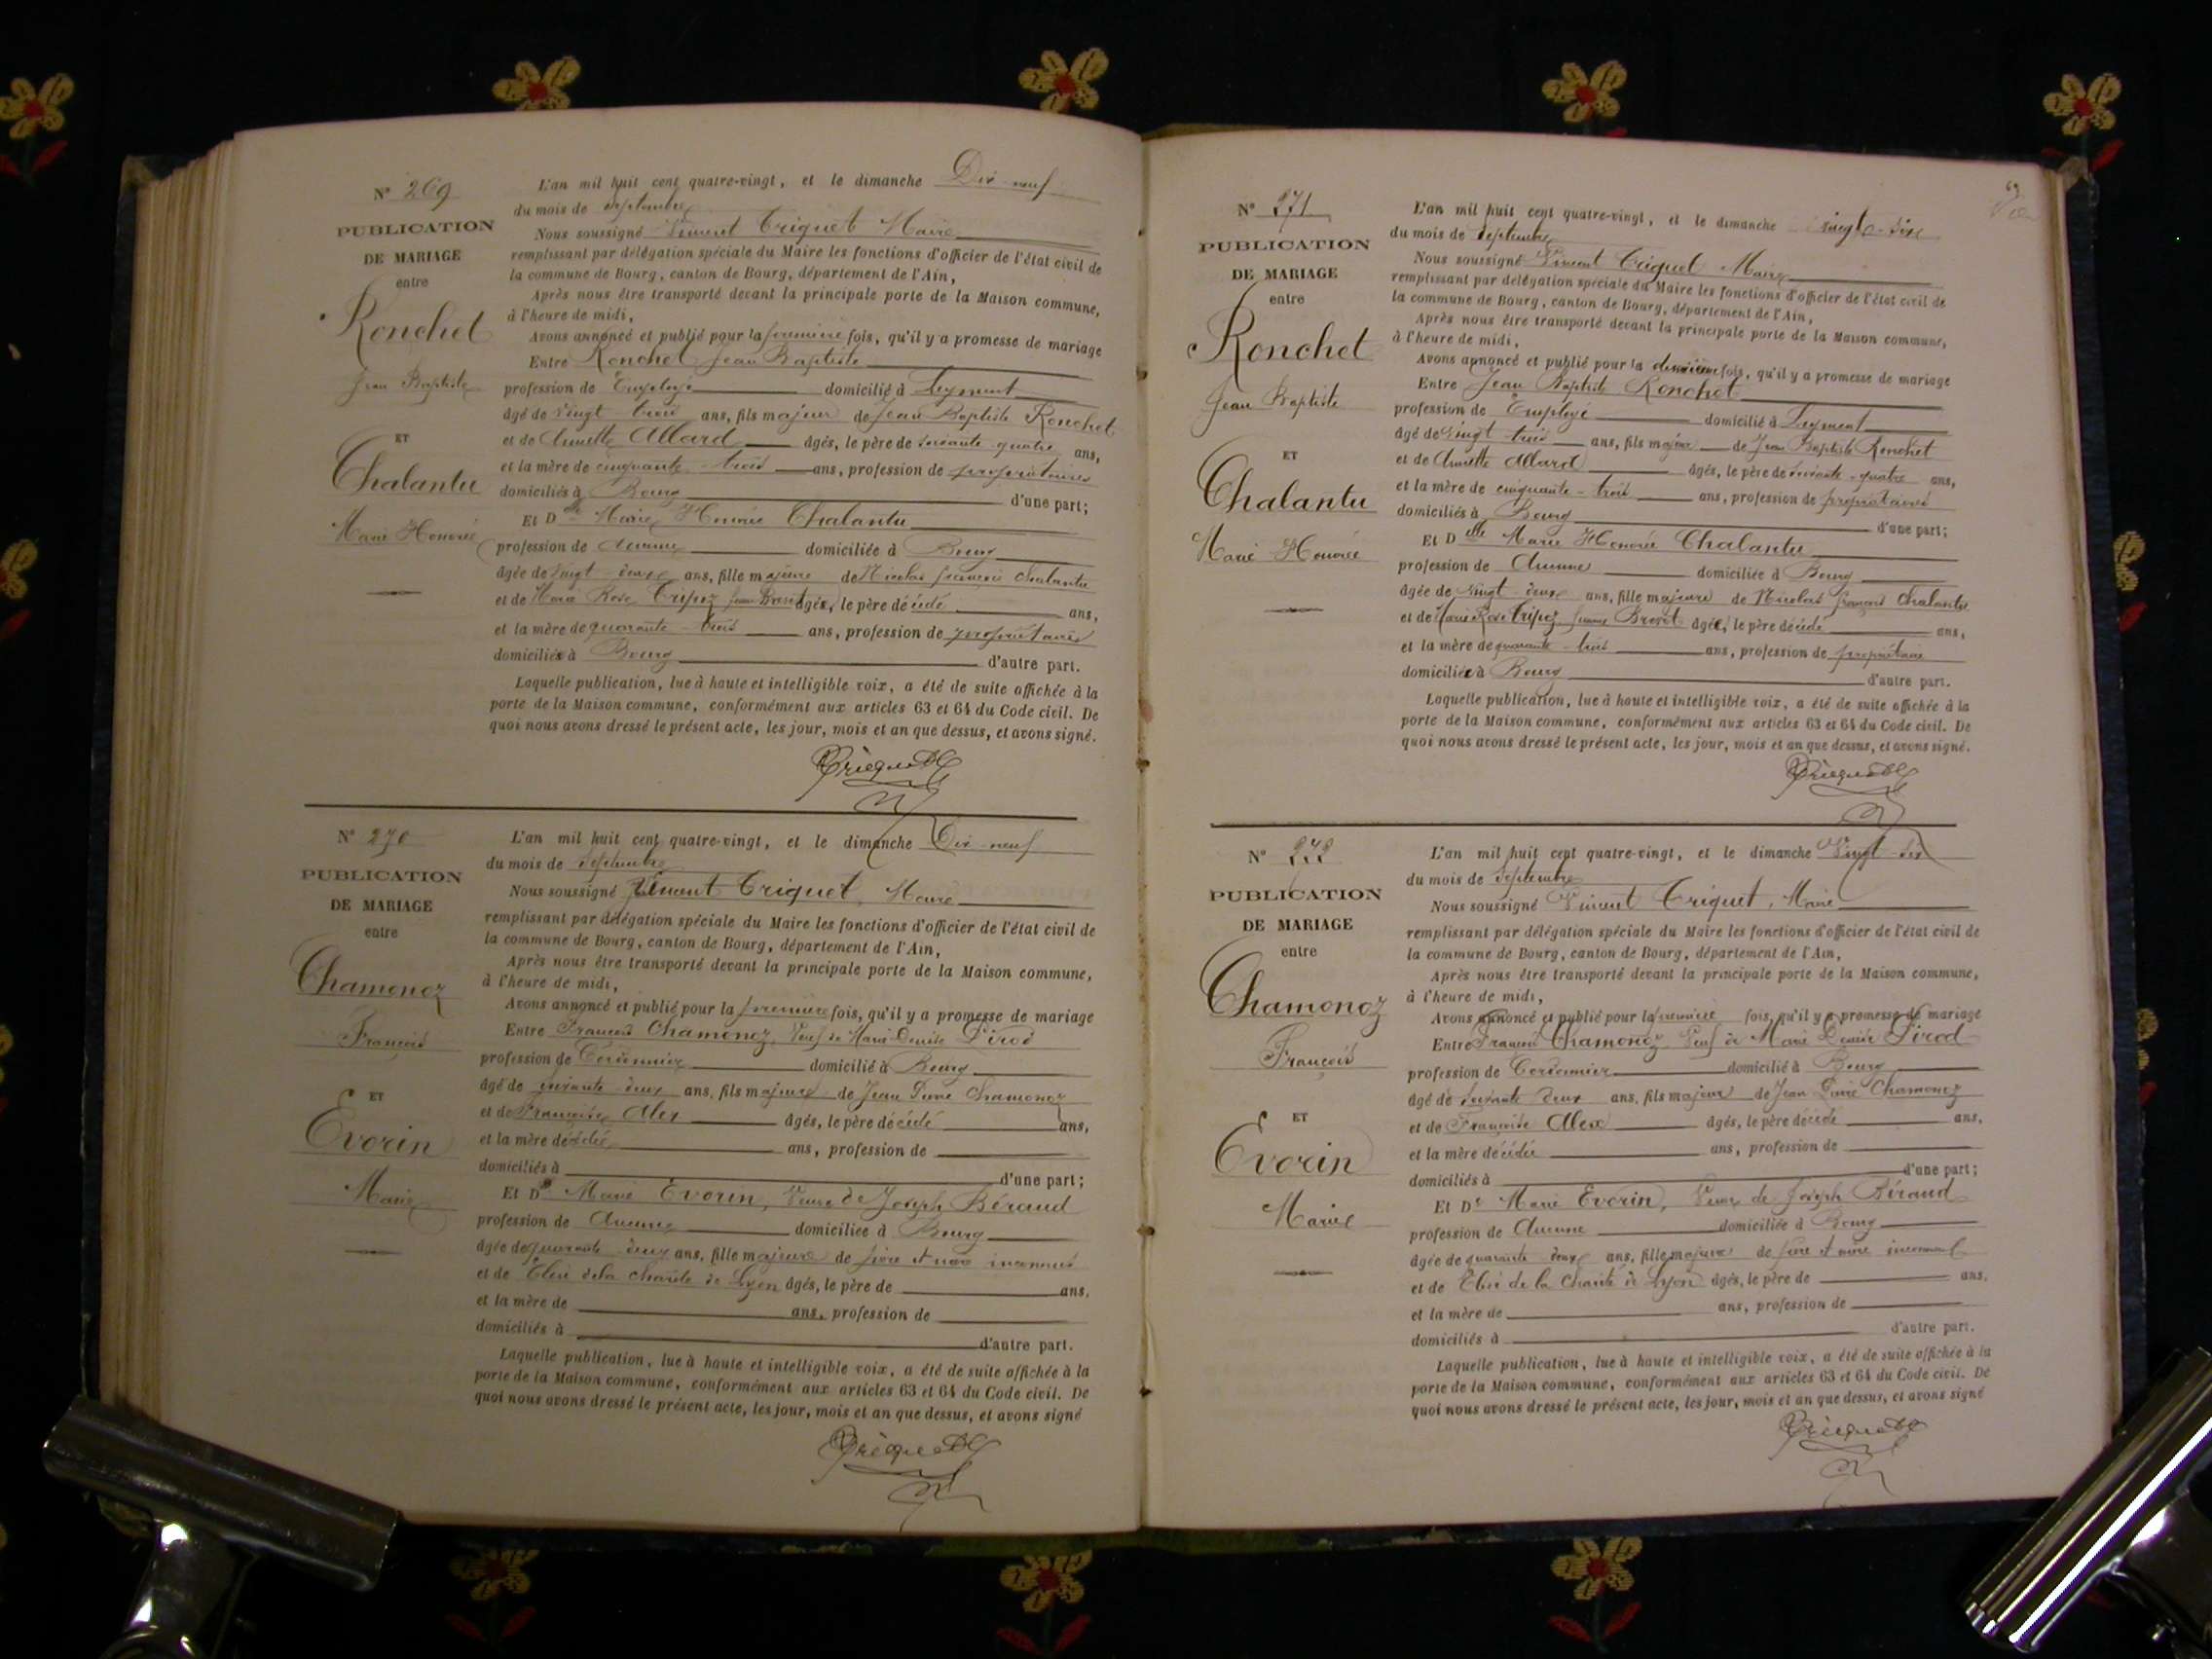 N° 269
PUBLICATION
DE MARIAGE
entre
Ronchet
Jean Baptiste
ET
Chalantu
Marie Honorée
L'an mil huit cent quatre-vingt, et le dimanche Dix-neuf
du mois de septembre
Nous soussigné Vincent Triquet Maire
remplissant par délégation spéciale du Maire les fonctions d'officier de l'état civil de
la commune de Bourg, canton de Bourg, département de l'Ain,
Après nous être transporté devant la principale porte de la Maison commune,
à l'heure de midi,
Avons annoncé et publié pour la première fois, qu'il y a promesse de mariage
Entre Ronchet Jean Baptiste
profession de Employé domicilié à Leyment
âgé de vingt trois ans, fils majeur de Jean Baptiste Ronchet
et de Annette Allard âgés, le père de soixante quatre ans,
et la mère de cinquante-trois ans, profession de propriétaires
domiciliés à Bourg d'une part;
Et Dlle Marie Honorée Chalantu
profession de Aucune domiciliée à Bourg
âgée de vingt-deux ans, fille majeure de Nicolas François Chalantu
et de Marie Rose Tripoz âgés, le père décédé ans,
et la mère de quarante-trois ans, profession de propriétaires
domiciliés à Bourg d'autre part.
Laquelle publication, lue à haute et intelligible voix, a été de suite affichée à la
porte de la Maison commune, conformément aux articles 63 et 64 du Code civil. De
quoi nous avons dressé le présent acte, les jour, mois et an que dessus, et avons signé.
Triquet
N° 270
PUBLICATION
DE MARIAGE
entre
Chamonoz
François
ET
Evorin
Marie
L'an mil huit cent quatre-vingt, et le dimanche Dix-neuf
du mois de septembre
Nous soussigné Vincent Triquet, Maire
remplissant par délégation spéciale du Maire les fonctions d'officier de l'état civil de
la commune de Bourg, canton de Bourg, département de l'Ain,
Après nous être transporté devant la principale porte de la Maison commune,
à l'heure de midi,
Avons annoncé et publié pour la première fois, qu'il y a promesse de mariage
Entre François Chamonoz, Veuf de Marie Denise Pirod
profession de Cordonnier domicilié à Bourg
âgé de soixante-deux ans, fils majeur de Jean Pierre Chamonoz
et de Françoise Alex âgés, le père décédé ans,
et la mère décédée ans, profession de
domiciliés à d'une part;
Et De Marie Evorin, Veuve de Joseph Béraud
profession de Aucune domiciliée à Bourg
âgée de quarante-deux ans, fille majeure de père et mère inconnus
et de Elève de la charité de Lyon âgés, le père de ans,
et la mère de ans, profession de
domiciliés à d'autre part.
Laquelle publication, lue à haute et intelligible voix, a été de suite affichée à la
porte de la Maison commune, conformément aux articles 63 et 64 du Code civil. De
quoi nous avons dressé le présent acte, les jour, mois et an que dessus, et avons signé
Triquet
N° 271
PUBLICATION
DE MARIAGE
entre
Ronchet
Jean Baptiste
ET
Chalantu
Marie Honorée
L'an mil huit cent quatre-vingt, et le dimanche vingt-six
du mois de septembre
Nous soussigné Vincent Triquet Maire
remplissant par délégation spéciale du Maire les fonctions d'officier de l'état civil de
la commune de Bourg, canton de Bourg, département de l'Ain,
Après nous être transporté devant la principale porte de la Maison commune,
à l'heure de midi,
Avons annoncé et publié pour la deuxième fois, qu'il y a promesse de mariage
Entre Jean Baptiste Ronchet
profession de Employé domicilié à Leyment
âgé de vingt-trois ans, fils majeur de Jean Baptiste Ronchet
et de Annette Allard âgés, le père de soixante-quatre ans,
et la mère de cinquante-trois ans, profession de propriétaires
domiciliés à Bourg d'une part;
Et Delle Marie Honorée Chalantu
profession de Aucune domiciliée à Bourg
âgée de vingt-deux ans, fille majeure de Nicolas François Chalantu
et de Marie Rose Tripoz femme Brevet âgés, le père décédé ans,
et la mère de quarante-trois ans, profession de propriétaire
domiciliés à Bourg d'autre part.
Laquelle publication, lue à haute et intelligible voix, a été de suite affichée à la
porte de la Maison commune, conformément aux articles 63 et 64 du Code civil. De
quoi nous avons dressé le présent acte, les jour, mois et an que dessus, et avons signé.
Triquet
N° 272
PUBLICATION
DE MARIAGE
entre
Chamonoz
François
ET
Evorin
Marie
L'an mil huit cent quatre-vingt, et le dimanche Vingt-six
du mois de septembre
Nous soussigné Vincent Triquet, Maire
remplissant par délégation spéciale du Maire les fonctions d'officier de l'état civil de
la commune de Bourg, canton de Bourg, département de l'Ain,
Après nous être transporté devant la principale porte de la Maison commune,
à l'heure de midi,
Avons annoncé et publié pour la fois, qu'il y a promesse de mariage
Entre François Chamonoz Veuf de Marie Denise Pirod
profession de Cordonnier domicilié à Bourg
âgé de soixante deux ans, fils majeur de Jean Pierre Chamonoz
et de Françoise Alex âgés, le père décédé ans,
et la mère décédée ans, profession de
domiciliés à d'une part;
Et De Marie Evorin, Veuve de Joseph Béraud
profession de Aucune domiciliée à Bourg
âgée de quarante deux ans, fille majeure de père et mère inconnus
et de Elève de la Charité de Lyon âgés, le père de ans,
et la mère de ans, profession de
domiciliés à d'autre part.
Laquelle publication, lue à haute et intelligible voix, a été de suite affichée à la
porte de la Maison commune, conformément aux articles 63 et 64 du Code civil. De
quoi nous avons dressé le présent acte, les jour, mois et an que dessus, et avons signé
Triquet